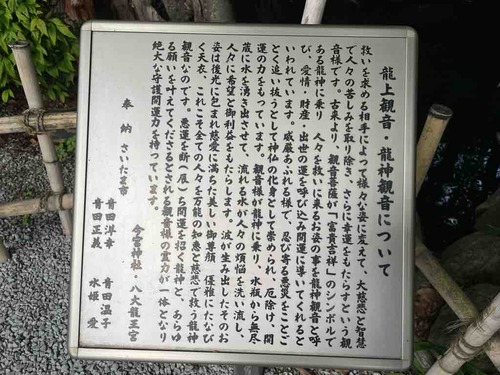 龍上観音・龍神観音について
救いを求める相手によって様々な姿に変えて、大慈悲と智慧
で人々の苦しみを取り除き、さらに幸運をもたらすという観
音様です。古来より、観音菩薩が「富貴吉祥」のシンボルで
ある龍神に乗り、人々を救いに来るお姿の事を龍神観音と呼
び、愛情・財産・出世の運を呼び込み開運に導いてくれると
いわれています。威厳あふれる様で、忍び寄る悪災をことご
とく追い抜うとして神仏の化身として崇められ、厄除け、開
運の力をもっています。観音様が龍神に乗り、水瓶から無尽
蔵に水を湧き出させて、流れる水が人々の煩悩を洗い流し、
人々に希望と御利益をもたらします。波が生み出したそのお
姿は後光に包まれ慈愛に満ちた美しい御尊顔、優雅にたなび
く天衣、これこそ全ての人々を万能の知恵と慈悲で救う龍神
観音なのです。悪運を断ち、運を招く龍神と、あらゆ
る願いを叶えてくださるとされる観音様の霊力が一体となり
絶大な守護開運力を持っています。
今宮神社・八大龍王宮
奉納 さいたま市
青田洋幸 青田温子
青田正義 水姫 愛